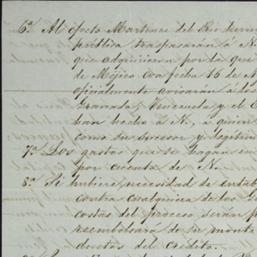 6.ª Al efecto Martinez del Rio herm
publica traspasarán á N.
que adquirieron por la que
de Mejico con fecha 16 de N
oficialmente avisarán á los
Granada, Venezuela y el E
han cedido á N. á quien
como su sucesor y legitim
7.ª Los gastos que se hagan en
por cuenta de N.
8.ª Si hubiere necesidad de entab
contra cualquiera de los
costas del proceso serán p
reembolsará de su monte
ductos del Crédito.